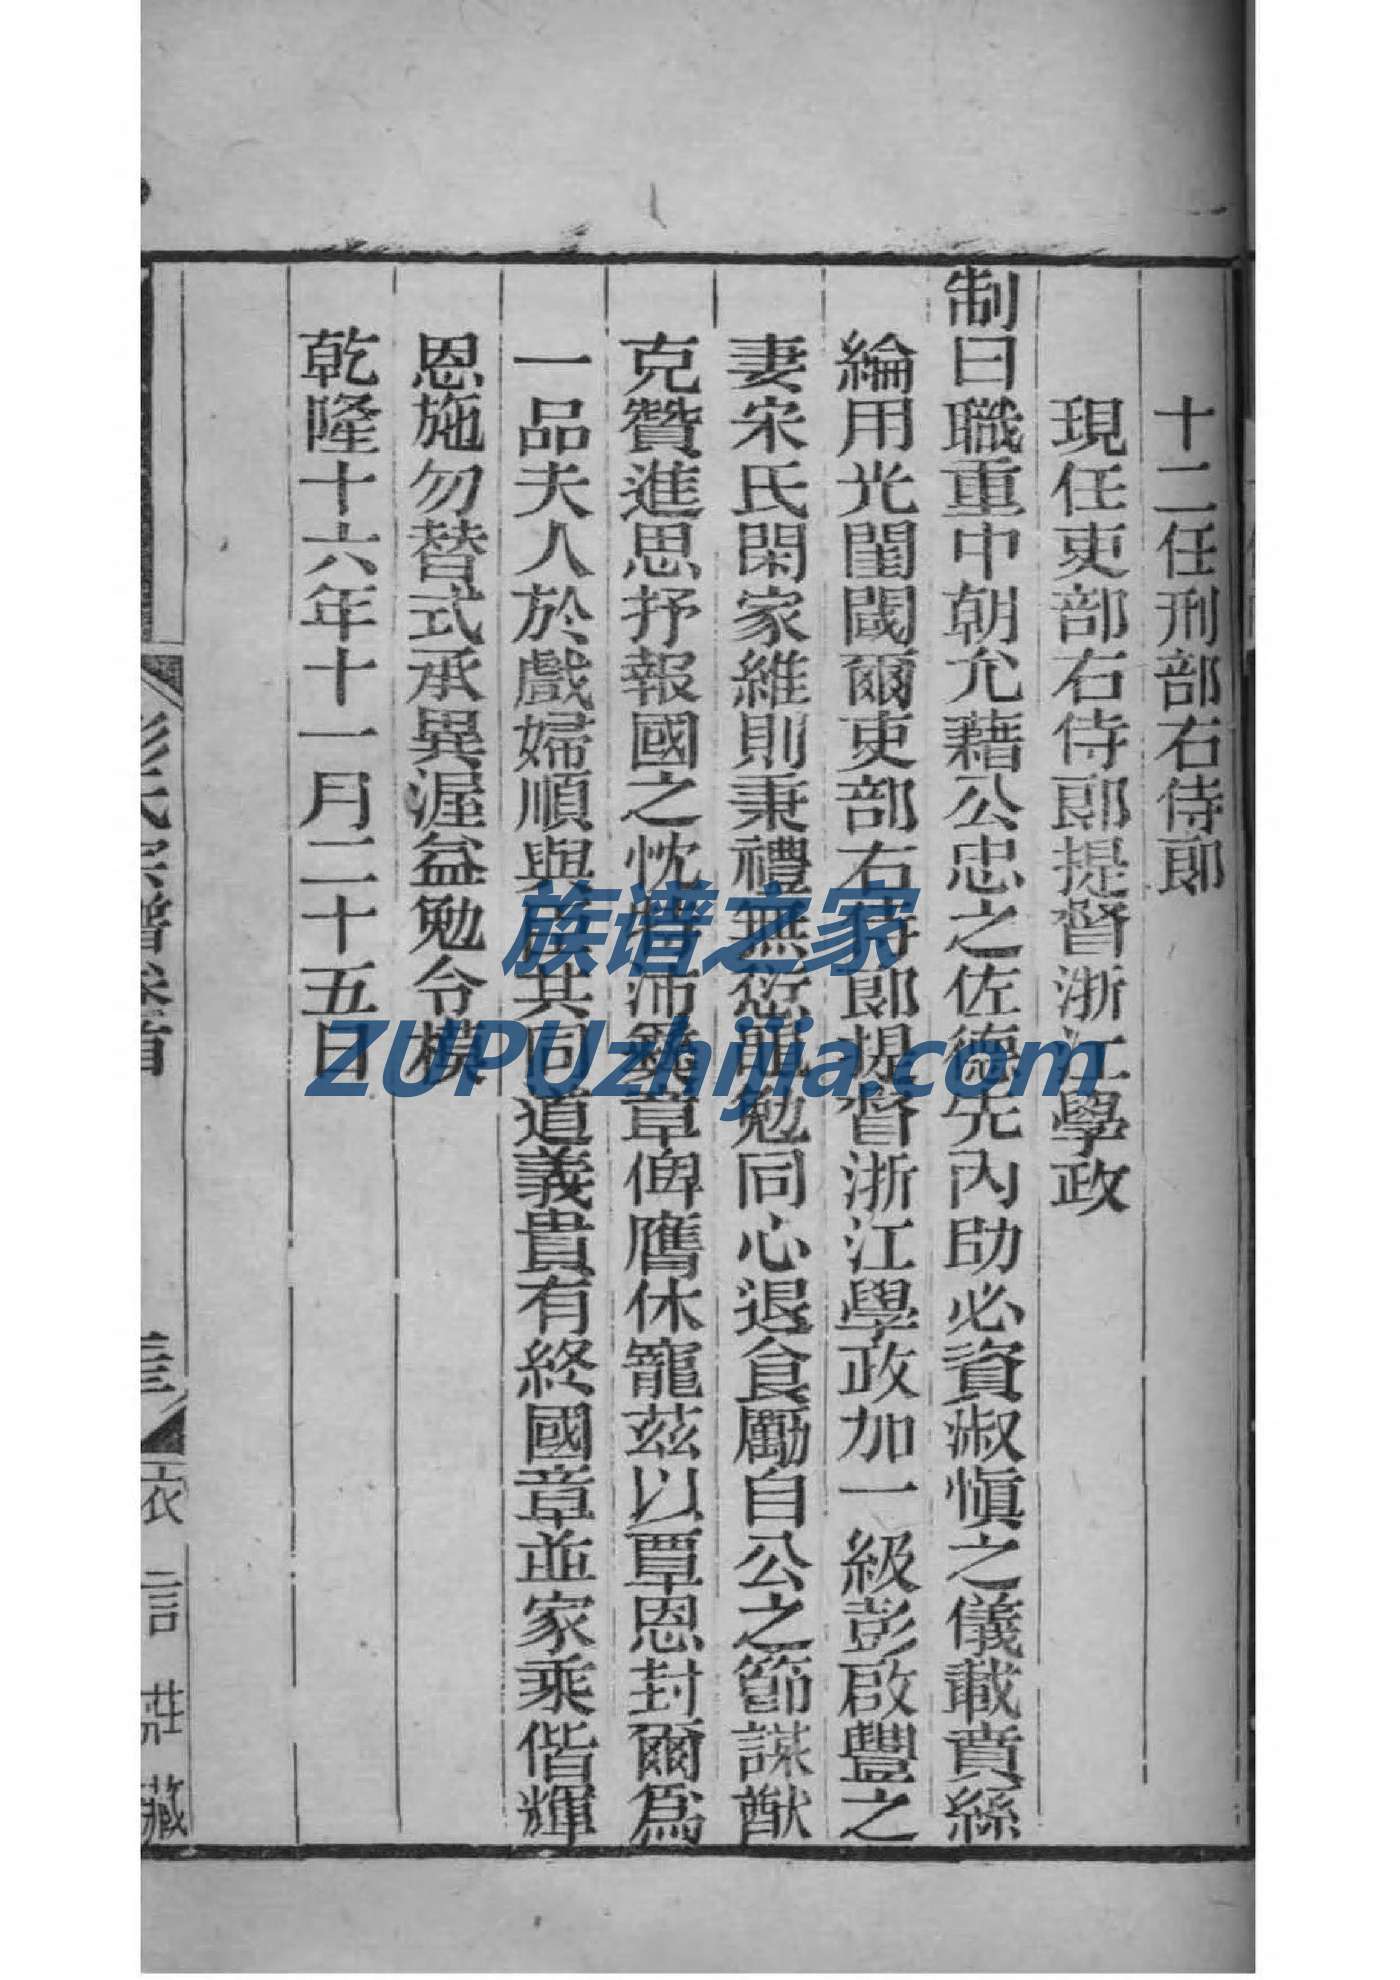 十二任刑部右侍郞
現任吏部右侍郞提督浙江學政
制曰職重中朝允藉公忠之佐德先內助必資淑愼之儀載賁絲
綸用光閨閫爾吏部右侍郞提督浙江學政加一級彭啟豐之
妻宋氏閑家維則秉禮無愆黽勉同心退食勵自公之節謀猷
克贊進思抒報國之忱特沛彝章俾膺休寵茲以覃恩封爾爲
一品夫人於戲婦順與臣共同道義貴有終國章並家乘偕輝
恩施勿替式承異渥益勉令模
乾隆十六年十一月二十五日
彭氏宗譜卷首
衣言莊藏
族谱之家
ZUPUzhijia.com